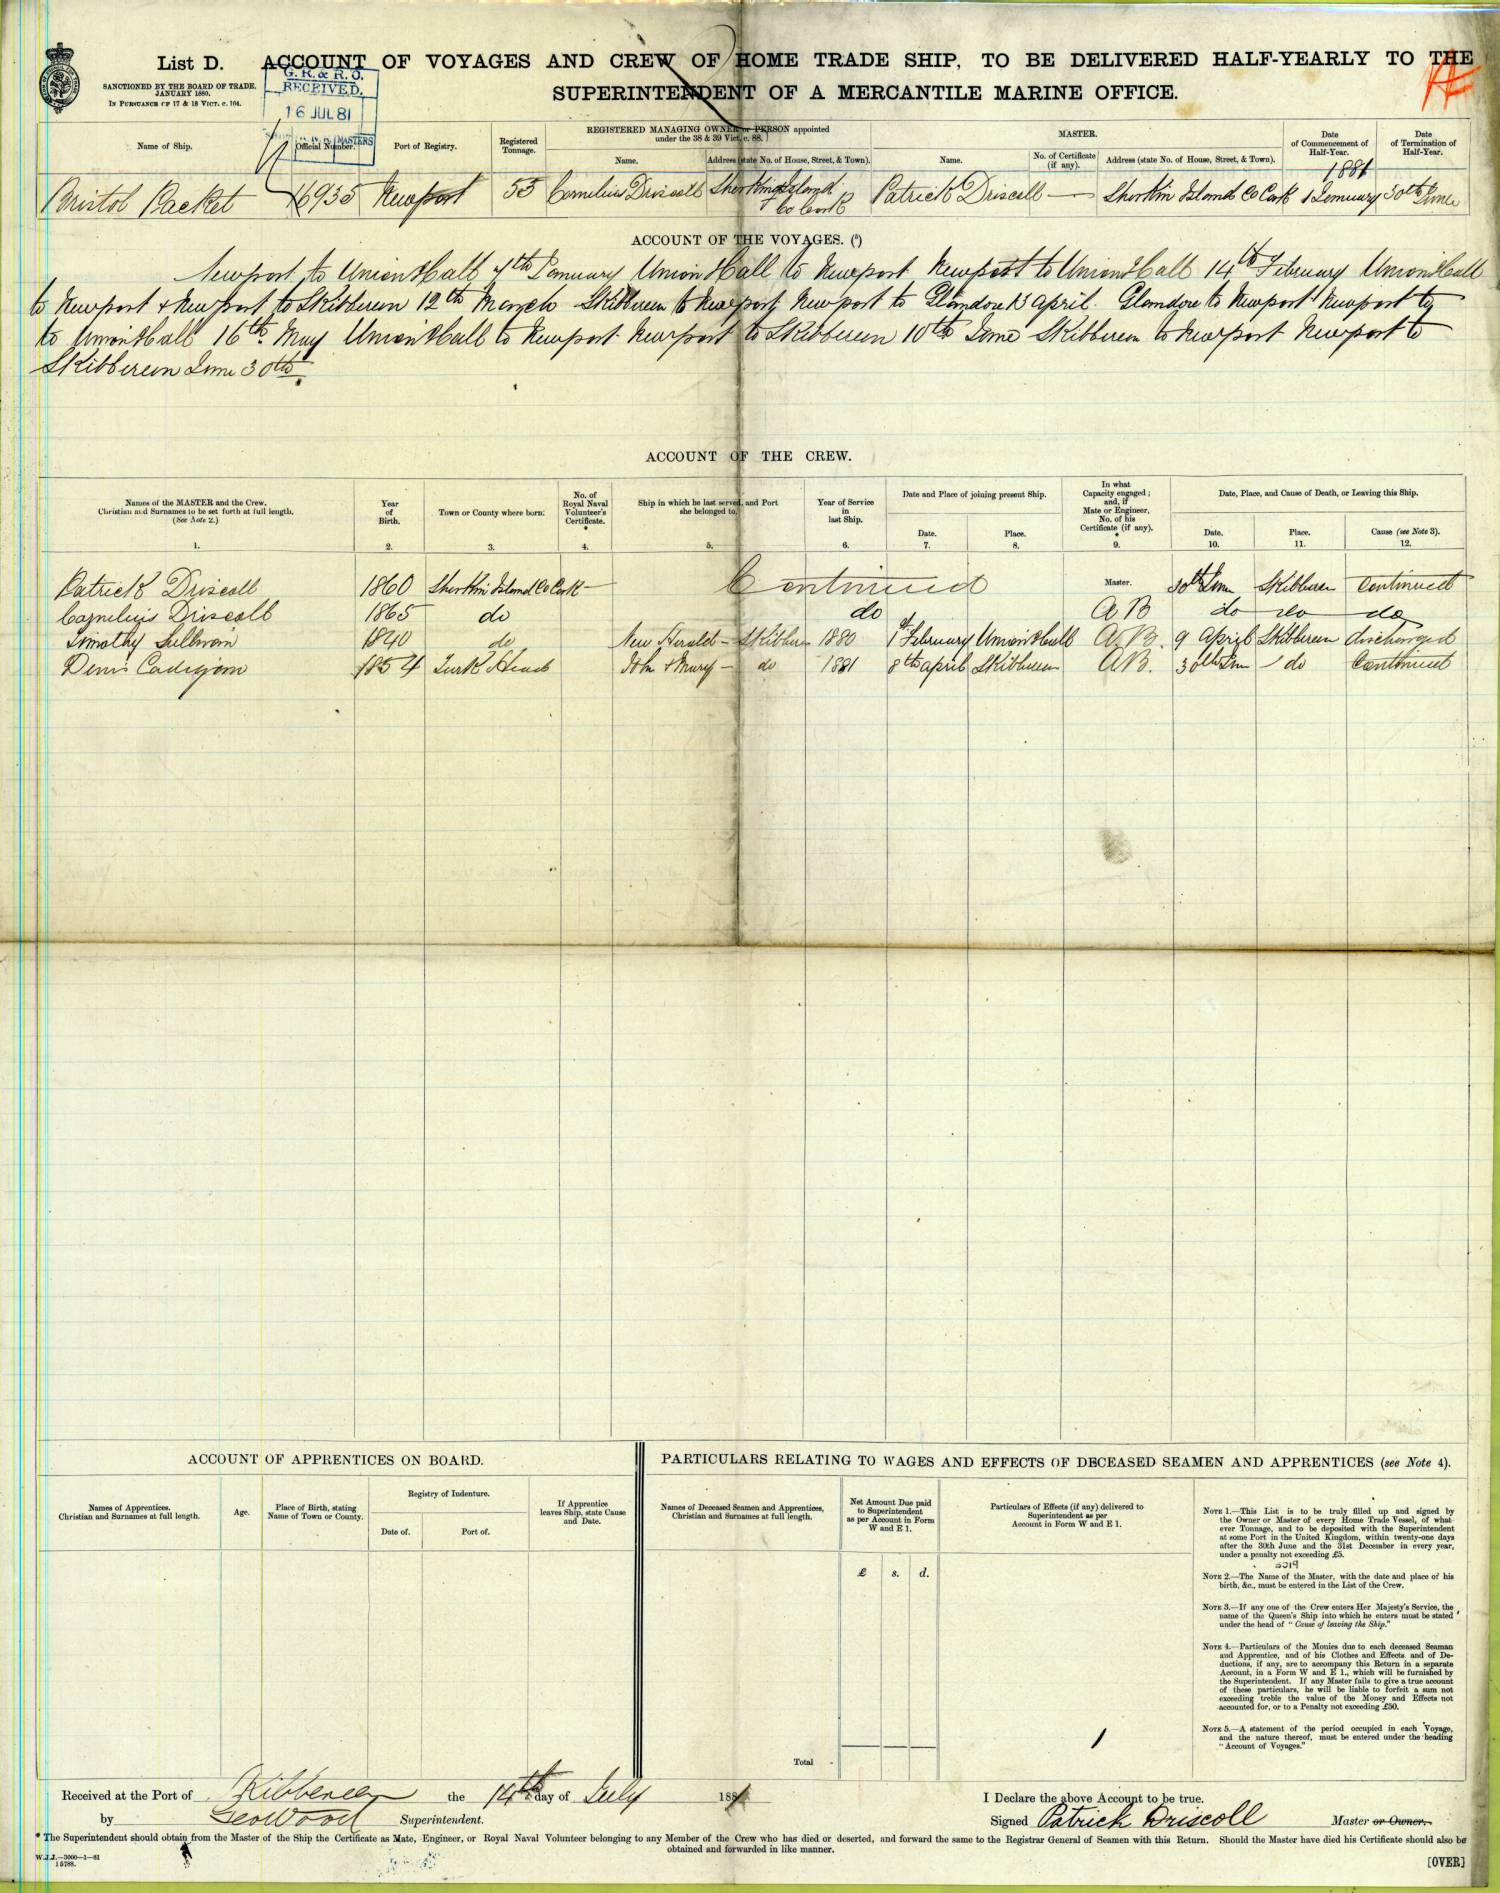 List D. ACCOUNT OF VOYAGES AND CREW OF HOME TRADE SHIP, TO BE DELIVERED HALF-YEARLY TO THE
SUPERINTENDENT OF A MERCANTILE MARINE OFFICE.
SANCTIONED BY THE BOARD OF TRADE.
JANUARY 1880.
IN PURSUANCE OF 17 & 18 VICT. c. 104.
G. R. & R. O.
RECEIVED.
16 JUL 81
MASTERS
Name of Ship. Official Number. Port of Registry. Registered Tonnage. REGISTERED MANAGING OWNER or PERSON appointed under the 38 & 39 Vict. c. 88. MASTER. Date of Commencement of Half-Year. Date of Termination of Half-Year.
Name. Address (state No. of House, Street, & Town). Name. No. of Certificate (if any). Address (state No. of House, Street, & Town).
1881
Bristol Packet 16935 Newport 55 Cornelius Driscoll Sherkin Island Co Cork Patrick Driscoll — Sherkin Island Co Cork 1 January 30th June
ACCOUNT OF THE VOYAGES. (5)
Newport to Union Hall 7th January Union Hall to Newport Newport to Union Hall 14th February Union Hall
to Newport & Newport to Skibbereen 12th March Skibbereen to Newport Newport to Glandore 13 April. Glandore to Newport Newport to
to Union Hall 16th May Union Hall to Newport Newport to Skibbereen 10th June Skibbereen to Newport Newport to
Skibbereen June 30th.
ACCOUNT OF THE CREW.
Names of the MASTER and the Crew. Christian and Surnames to be set forth at full length. (See Note 2.) Year of Birth. Town or County where born. No. of Royal Naval Volunteer's Certificate. * Ship in which he last served, and Port she belonged to. Year of Service in last Ship. Date and Place of joining present Ship. In what Capacity engaged; and, if Mate or Engineer, No. of his Certificate (if any). * Date, Place, and Cause of Death, or Leaving this Ship.
Date. Place. Date. Place. Cause (see Note 3).
1. 2. 3. 4. 5. 6. 7. 8. 9. 10. 11. 12.
Patrick Driscoll 1860 Sherkin Island Co Cork — Continued Master. 30th June Skibbereen Continued
Cornelius Driscoll 1865 do do AB do do do
Timothy Sullivan 1840 do New Herald – Skibbn 1880 1st February Union Hall A.B. 9 April Skibbereen discharged
Denis Cadigan 1854 Turk Head John & Mary – do 1881 8th April Skibbereen AB. 30th Jun do Continued
ACCOUNT OF APPRENTICES ON BOARD. PARTICULARS RELATING TO WAGES AND EFFECTS OF DECEASED SEAMEN AND APPRENTICES (see Note 4).
Names of Apprentices. Christian and Surnames at full length. Age. Place of Birth, stating Name of Town or County. Registry of Indenture. Date of. Port of. If Apprentice leaves Ship, state Cause and Date.
Names of Deceased Seamen and Apprentices, Christian and Surnames at full length. Net Amount Due paid to Superintendent as per Account in Form W and E 1. Particulars of Effects (if any) delivered to Superintendent as per Account in Form W and E 1.
£ s. d.
Total
NOTE 1.—This List is to be truly filled up and signed by
the Owner or Master of every Home Trade Vessel, of what-
ever Tonnage, and to be deposited with the Superintendent
at some Port in the United Kingdom, within twenty-one days
after the 30th June and the 31st December in every year,
under a penalty not exceeding £5.
NOTE 2.—The Name of the Master, with the date and place of his
birth, &c., must be entered in the List of the Crew.
NOTE 3.—If any one of the Crew enters Her Majesty's Service, the
name of the Queen's Ship into which he enters must be stated
under the head of "Cause of leaving the Ship."
NOTE 4.—Particulars of the Monies due to each deceased Seaman
and Apprentice, and of his Clothes and Effects and of De-
ductions, if any, are to accompany this Return in a separate
Account, in a Form W and E 1., which will be furnished by
the Superintendent. If any Master fails to give a true account
of these particulars, he will be liable to forfeit a sum not
exceeding treble the value of the Money and Effects not
accounted for, or to a Penalty not exceeding £50.
NOTE 5.—A statement of the period occupied in each Voyage,
and the nature thereof, must be entered under the heading
"Account of Voyages."
Received at the Port of Skibbereen the 14th day of July 1881 I Declare the above Account to be true.
by Geo Wood Superintendent. Signed Patrick Driscoll Master or Owner.
* The Superintendent should obtain from the Master of the Ship the Certificate as Mate, Engineer, or Royal Naval Volunteer belonging to any Member of the Crew who has died or deserted, and forward the same to the Registrar General of Seamen with this Return. Should the Master have died his Certificate should also be
obtained and forwarded in like manner.
W.J.J.—3000—1—81
15788.
[OVER]